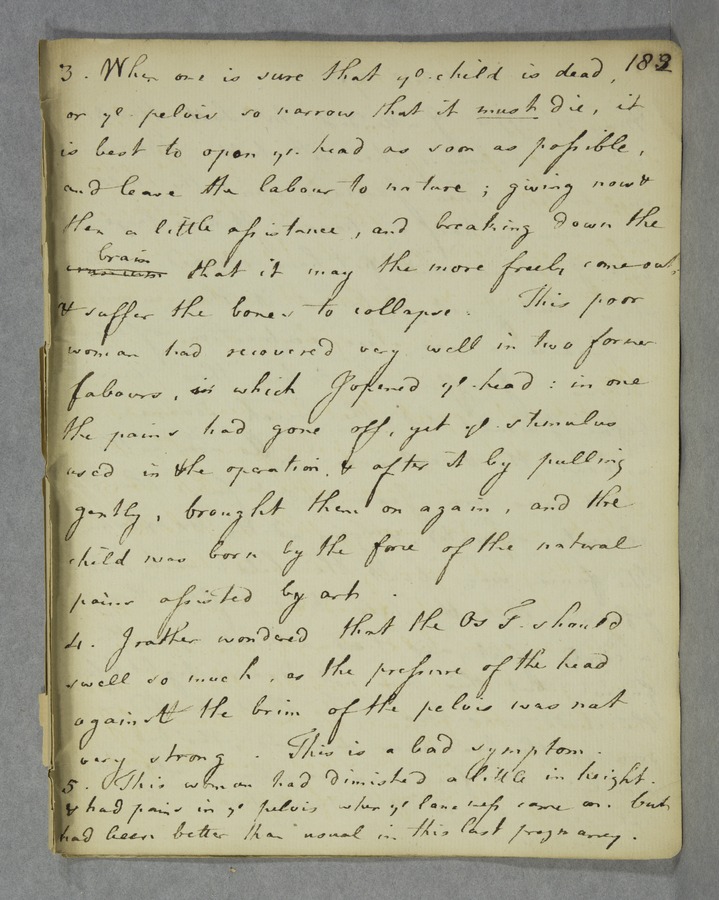 183
3. When one is sure that ye. child is dead,
or ye. pelvis so narrow that it must die, it
is best to open ye. head as soon as possible,
and leave the labour to nature; giving now &
then a little assistance, and breaking down the
brain
that it may the more freely come out,
& suffer the bones to collapse. This poor
woman had recovered very well in two former
labours, in which I opened ye. head: in one
the pains had gone off, yet ye. stimulus
used in the operation, & after it by pulling
gently, brought them on again, and the
child was born by the force of the natural
pains assisted by art.
4. I rather wondered that the Os T. should
swell so much, as the pressure of the head
against the brim of the pelvis was not
very strong. This is a bad symptom.
5. This woman had diminished a little in height.
& had pains in ye pelvis when ye lameness came on. but
had been better than usual in this last pregnancy.